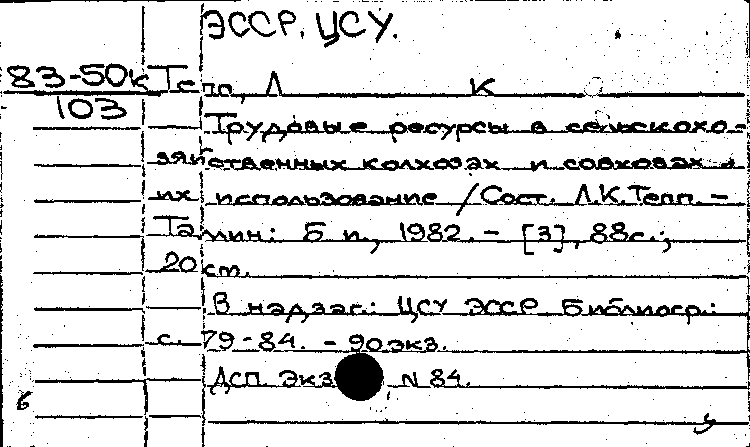 ЭССР. ЦСУ.
83-50к
103
Тепп, Л К
Трудовые ресурсы в сельскохо-
зяйственных колхозах и совхозах и
их использование / Сост. Л.К.Тепп. -
Таллин: Б и., 1982. - [3], 88с.;
20 см.
В надзаг.: ЦСУ ЭССР. Библиогр.:
с. 79-84. - 90экз.
ДСП. Экз N 84.
6